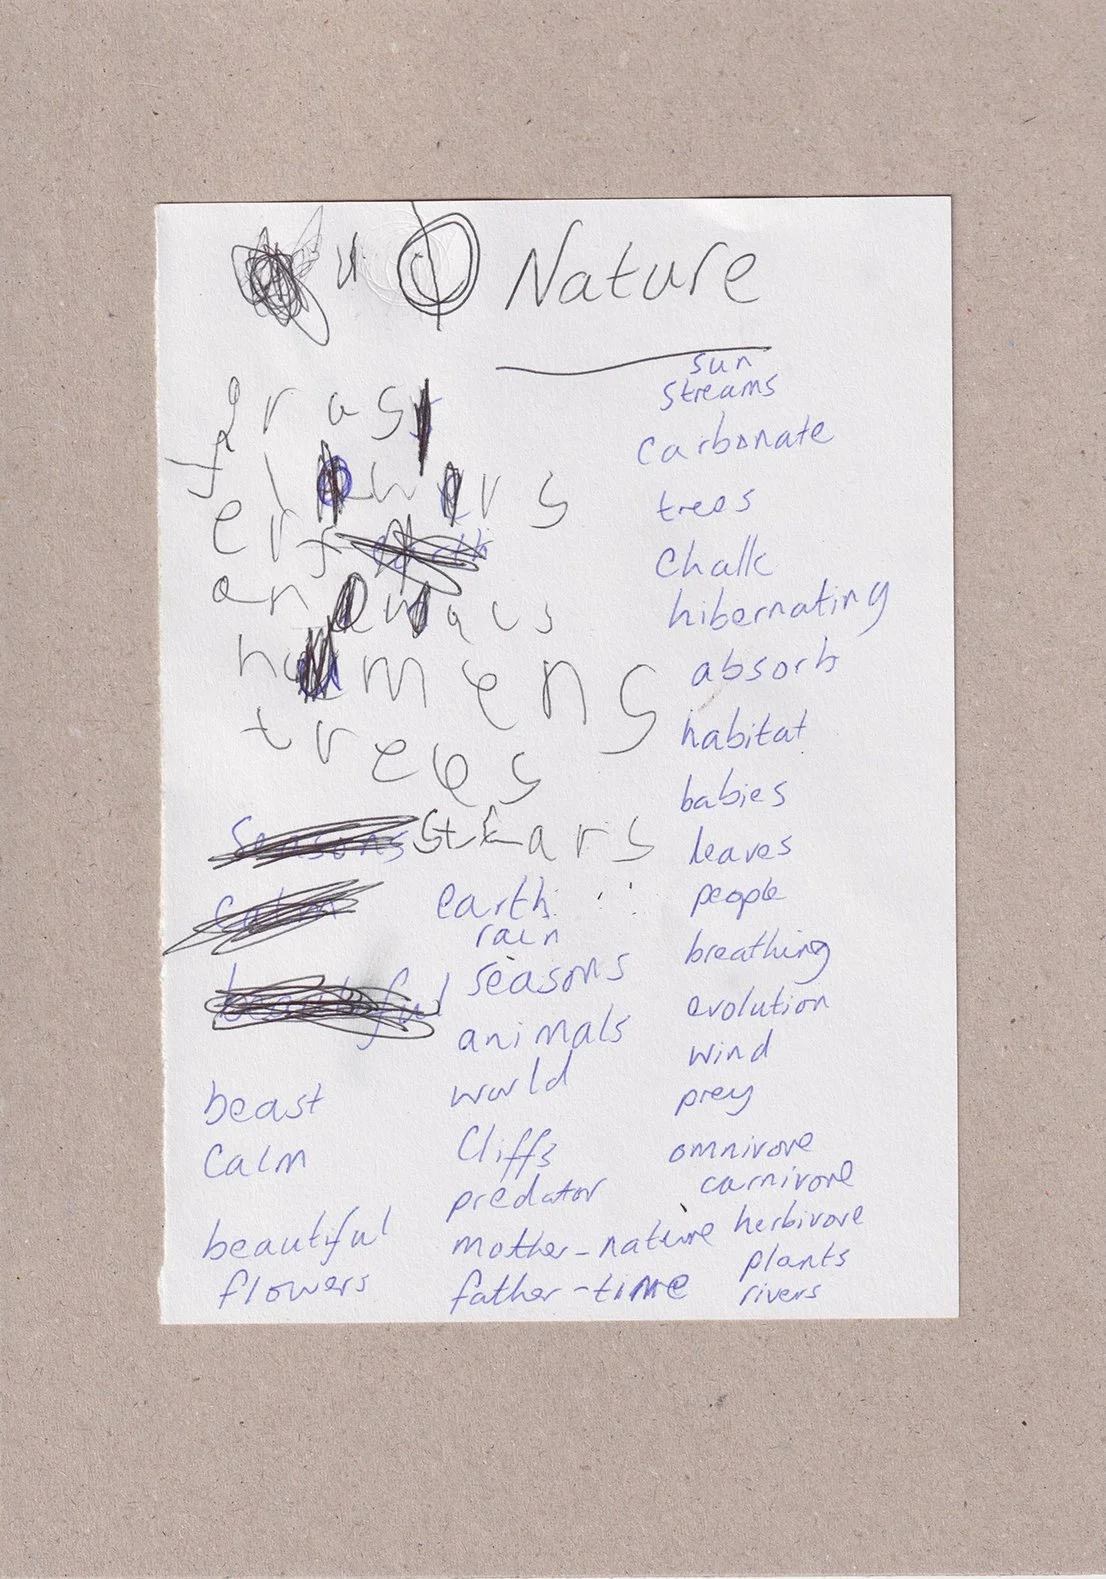 Nature
gras
flowers
erf
humens
trees
stears
earth
rain
seasons
animals
world
Cliffs
predator
mother-nature
father-time
beast
Calm
beautiful
flowers
sun
streams
carbonate
trees
Chalk
hibernating
absorb
habitat
babies
leaves
people
breathing
evolution
wind
prey
omnivore
carnivore
herbivore
plants
rivers